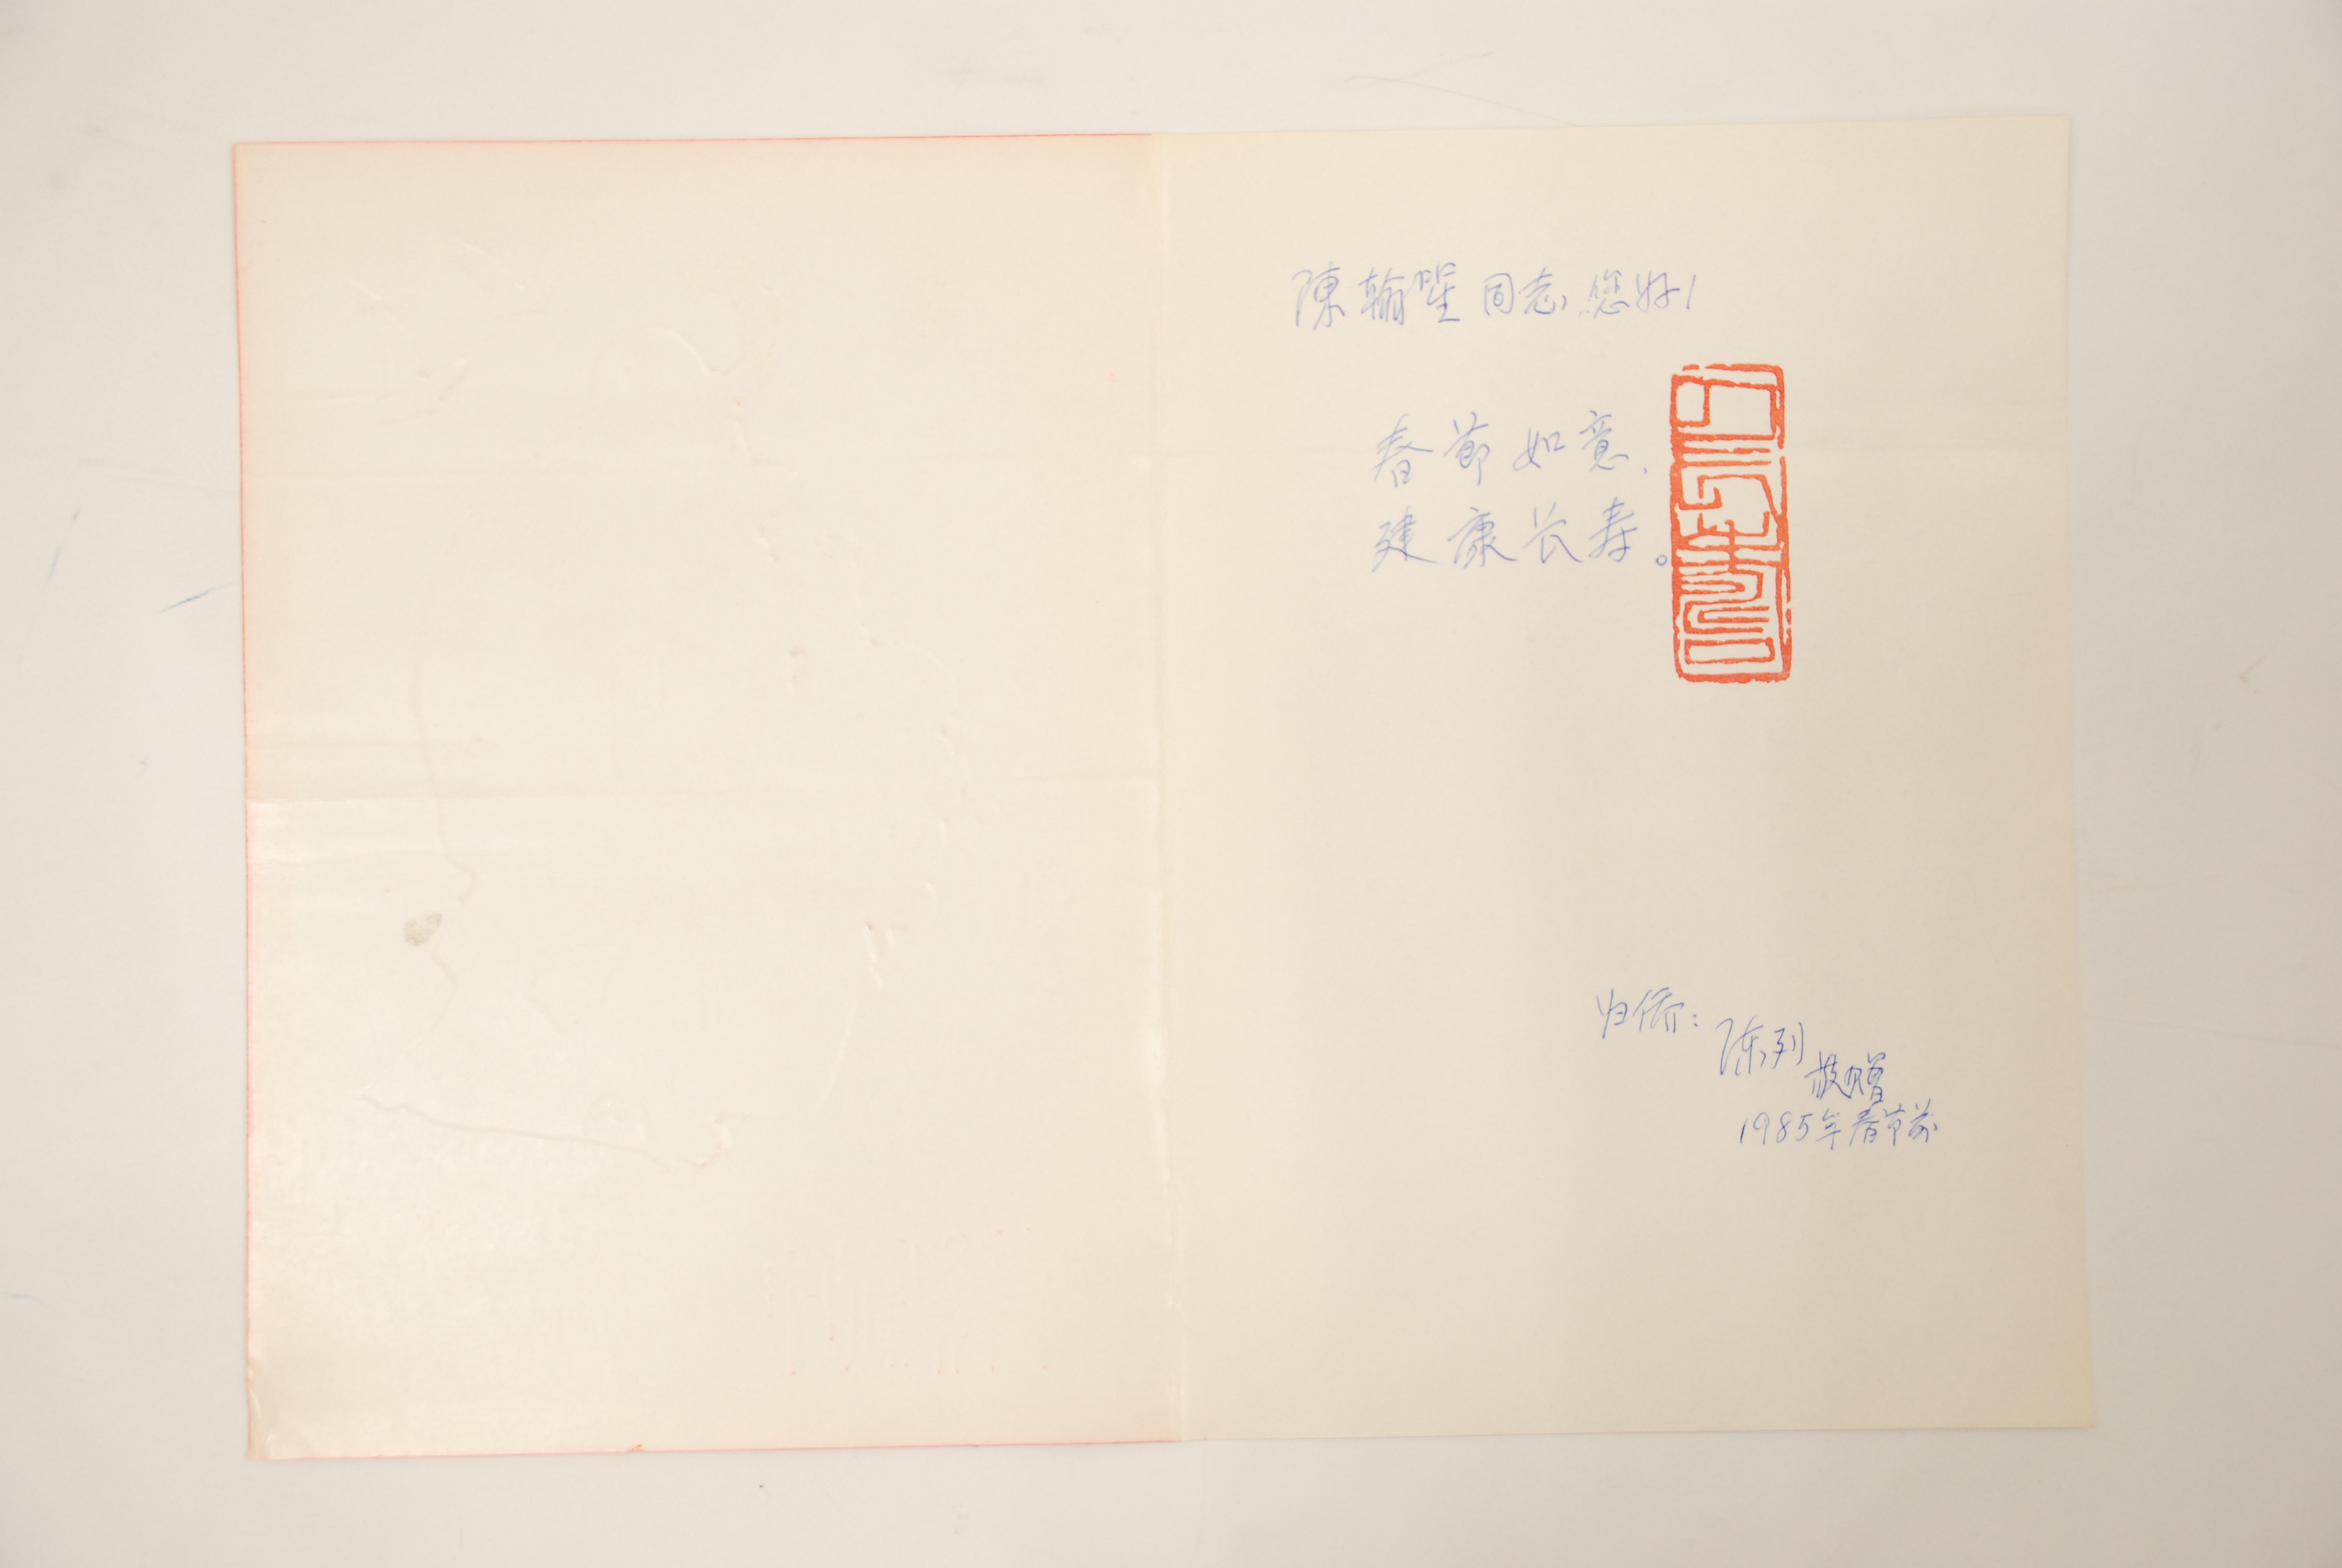 陳翰笙同志,您好!
春節如意,
建康长寿。
归侨:陈列
敬赠
1985年春节前